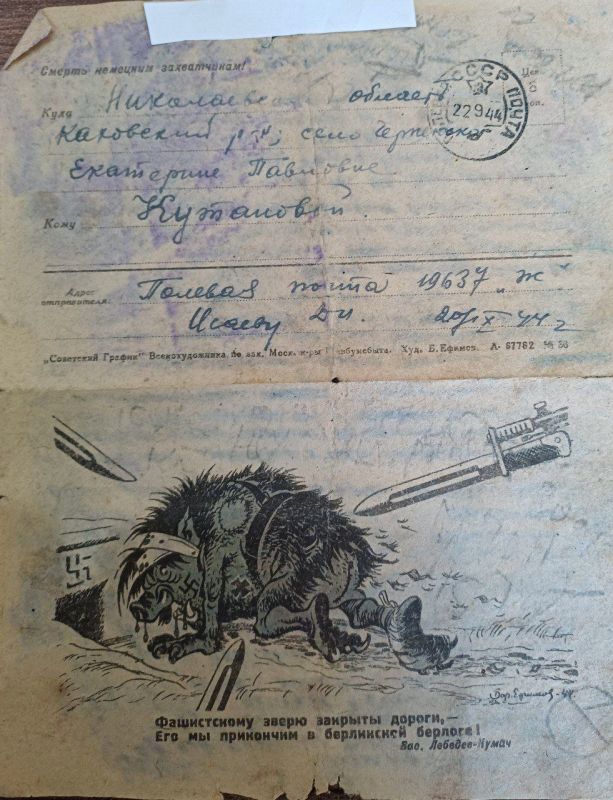 Смерть немецким захватчикам!
Куда Николаевская область
Каховский р-н; село
Екатерине Павловне
Кому
Адрес отправителя: Полевая почта 19637 „Ж"
Исаеву Дм. 20/IX 44 г
„Советский График" Всекохудожника, по зак. Моск. к-ры Худ. Б. Ефимов. А-67782
СССР ПОЧТА
22 9 44
Бор. Ефимов-44.
Фашистскому зверю закрыты дороги,—
Его мы прикончим в берлинской берлоге!
Вас. Лебедев-Кумач